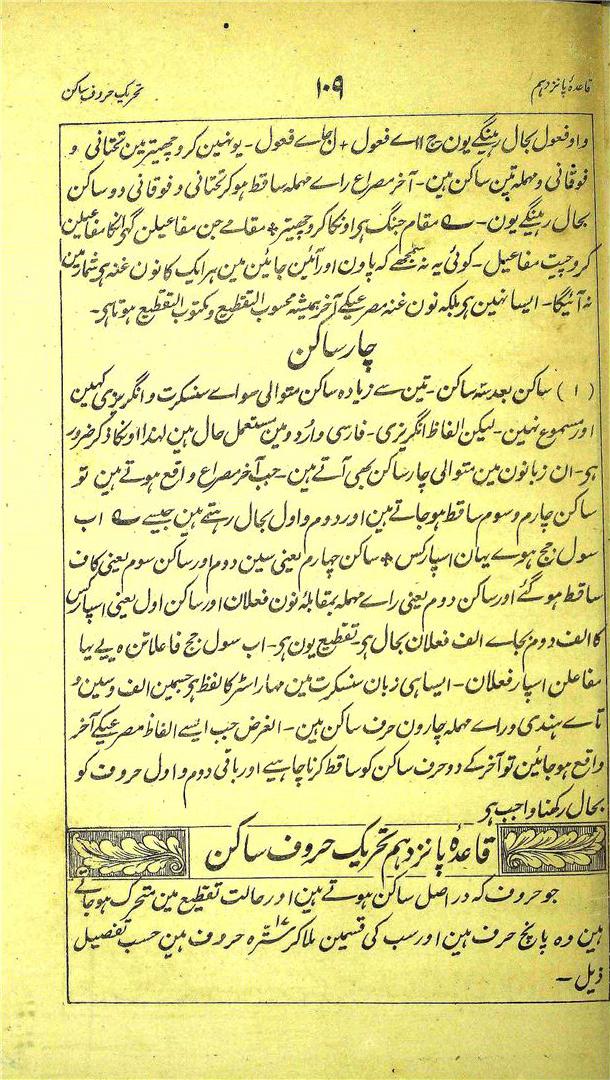 قاعدۂ پانزدہم ۱۰۹ تحریک حروف ساکن
واو فعول بحال رہینگے یون حج اا اے فعول + ل جاے فعول ۔ یونہین کروچھیتر مین تحتانی و
فوقانی و مہملہ تین ساکن ہین ۔ آخر مصراع راے مہملہ ساقط ہو کر تحتانی و فوقانی دو ساکن
بحال رہینگے یون ۔ ے مقام جنگ ہی اونکا کروچھیتر + مقامے جن مفاعیلن گہی انکا مفاعیلن
کروچیت مفاعیل ۔ کوئی یہ نہ سمجھے کہ پاون اور آئین جائین مین ہر ایک کا نون غنہ ہی شمار مین
نہ آئیگا ۔ ایسا نہین ہی بلکہ نون غنہ مصرعیکے آخر ہمیشہ محسوب التقطیع و مکتوب التقطیع ہوتا ہی ۔
چار ساکن
( ۱ ) ساکن بعد سہ ساکن ۔ تین سے زیادہ ساکن متوالی سواے سنسکرت و انگریزی کہین
اور مسموع نہین ۔ لیکن الفاظ انگریزی ۔ فارسی و اردو مین مستعمل حال ہین لہندا اونکا ذکر ضرور
ہی ۔ ان زبانون مین متوالی چار ساکن بھی آتے ہین ۔ جب آخر مصراع واقع ہوتے ہین تو
ساکن چارم و سوم ساقط ہو جاتے ہین اور دوم و اول بحال رہتے ہین جیسے ے اب
سول جج ہوے یہان اسپارکس + ساکن چہارم یعنی سین دوم اور ساکن سوم یعنی کاف
ساقط ہو گئے اور ساکن دوم یعنی راے مہملہ بمقابلۂ نون فعلان اور ساکن اول یعنی اسپارکس
کا الف دوم بجاے الف فعلان بحال ہی ۔ تقطیع یون ہی ۔ اب سول جج فاعلاتن ہ یے یہا
مفاعلن اسپار فعلان ۔ ایسا ہی زبان سنسکرت مین مہاراسٹر کا لفظ ہی جسمین الف و سین و
تاے ہندی و راے مہملہ چارون حرف ساکن ہین ۔ الغرض جب ایسے الفاظ مصرعیکے آخر
واقع ہو جائین تو آخر کے دو حرف ساکن کو ساقط کرنا چاہیے اور باقی دوم و اول حروف کو
بحال رکھنا واجب ہی
قاعدۂ پانزدہم تحریک حروف ساکن
جو حروف کہ در اصل ساکن ہوتے ہین اور حالت تقطیع مین متحرک ہو جاتے
ہین وہ پانچ حرف ہین اور سب کی قسمین ملا کر سترہ ۱۷ حروف ہین حسب تفصیل
ذیل ۔